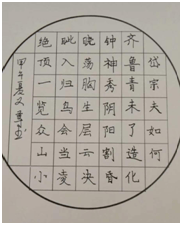 岱宗夫如何
齐鲁青未了造化
钟神秀阴阳割昏
晓荡胸生层云决
眦入归鸟会当凌
绝顶一览众山小
甲午夏